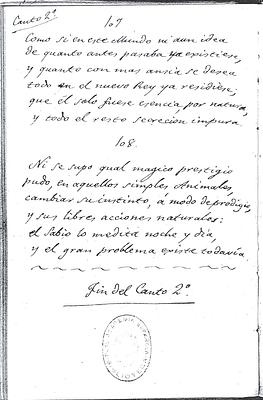 Canto 2º
107
Como si en este Mundo ni aun idea
de quanto antes pasaba ya existiese,
y quanto con mas ansia se desea
todo en el nuevo Rey ya residiese;
que el solo fuese esencia, por natura,
y todo el resto secrecion impura
108.
Ni se supo qual magico prestigio
pudo, en aquellos simples Animales,
cambiar su instinto, a modo de prodigio,
y sus libres acciones naturales:
el Sabio lo medita noche y dia,
y el gran problema existe todavia
Fin del Canto 2º